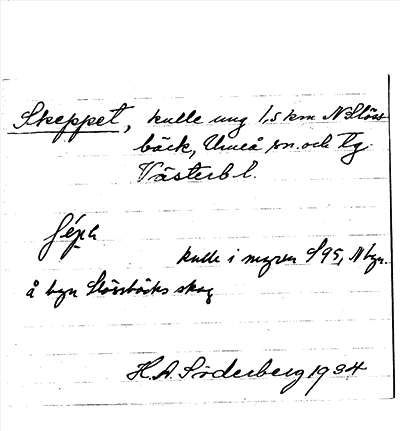 Skeppet, kulle ung 1,5 km N Stöss
bäck, Umeå sn. och tg.
Västerb l.
kulle i myren S 95, N byn.
å byn Stössböcks skog
H.A. Söderberg 1934